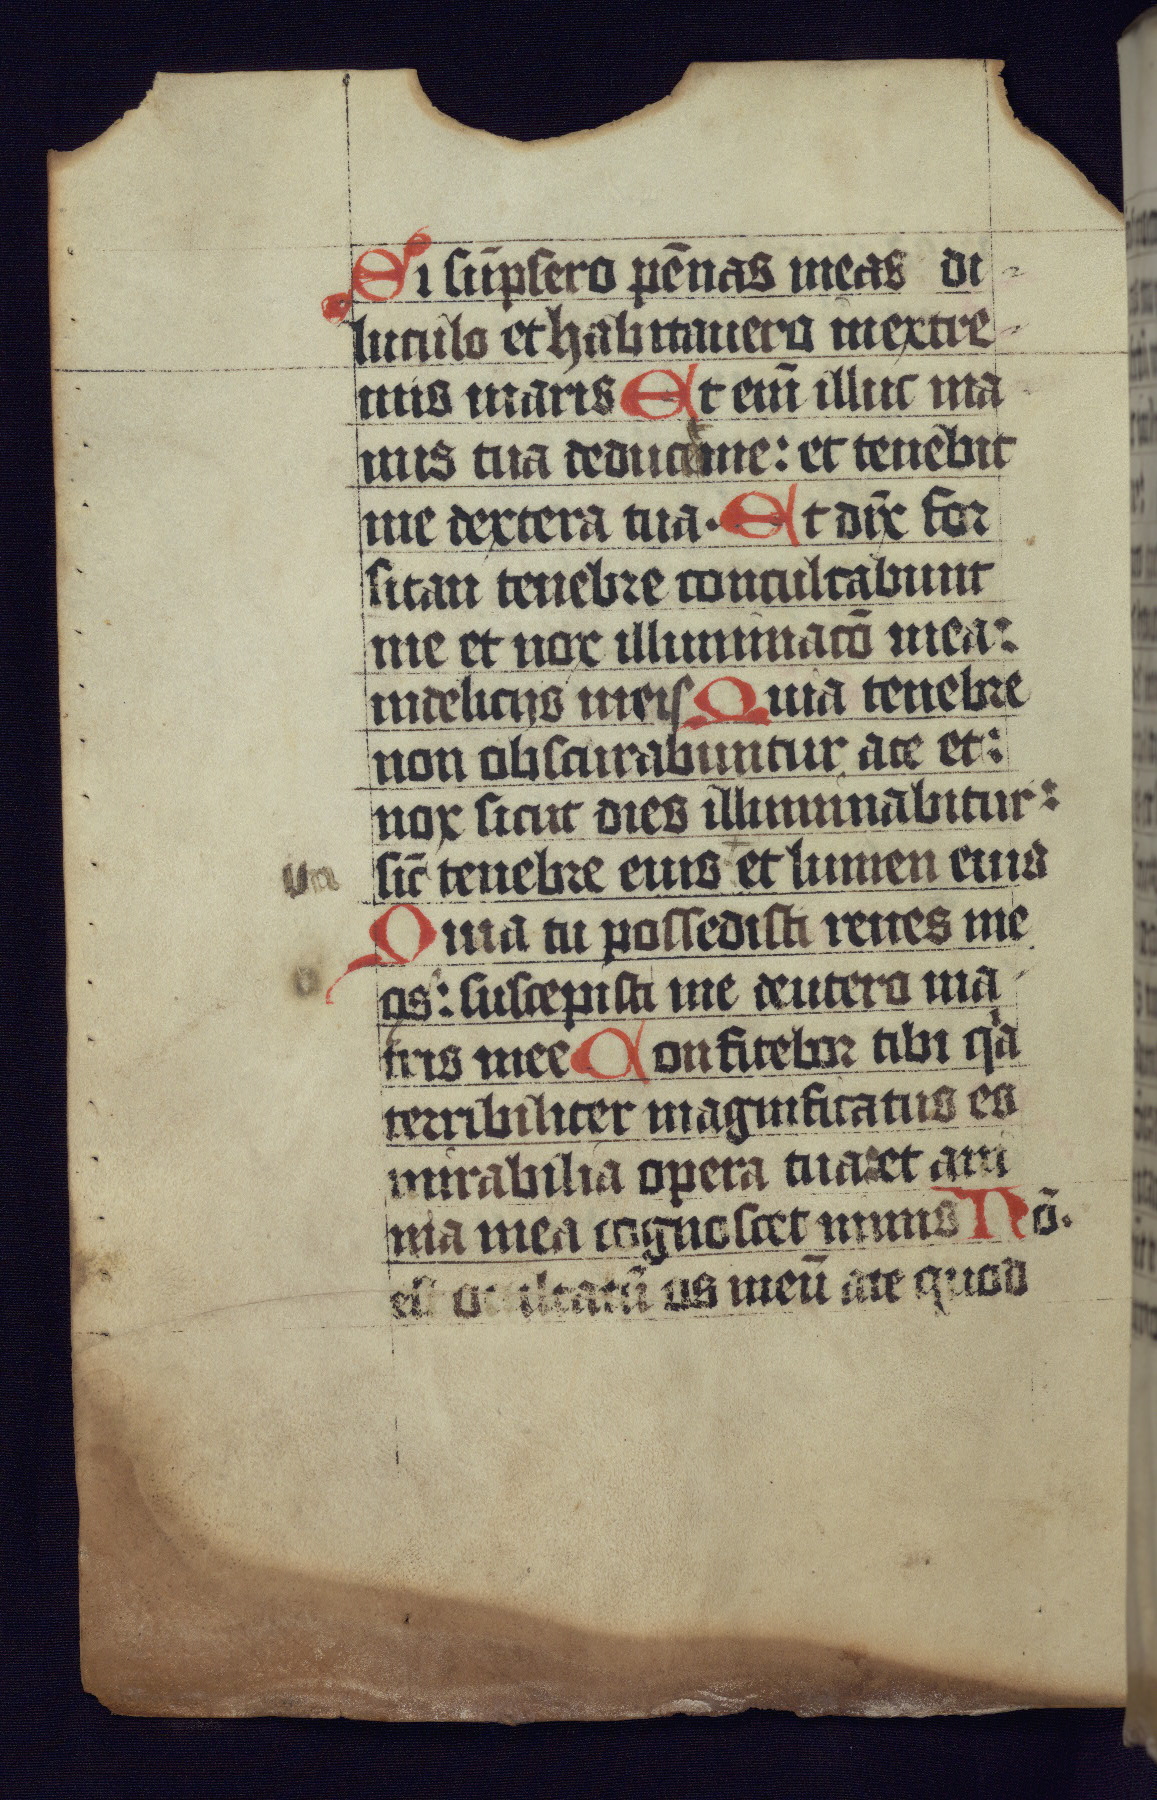 Si sūpsero pēnas meas di
luculo et habitauero inextre
mis maris Et em̄ illuc ma
nus tua deducet me: et tenebit
me dextera tua. Et dix̄ for
sitan tenebre conculcabunt
me et nox illuminacō mea:
indelicijs meis Quia tenebre
non obscurabuntur ate et:
nox sicut dies illuminabitur:
sic̄ tenebre eius et lumen eius
Quia tu possedisti renes me
os: suscepisti me deutero ma
tris mee Confitebor tibi qa
terribiliter magnificatus es
mirabilia opera tua: et ani
ma mea cognoscet nimis Nō.
est occultatū os meū ate quod